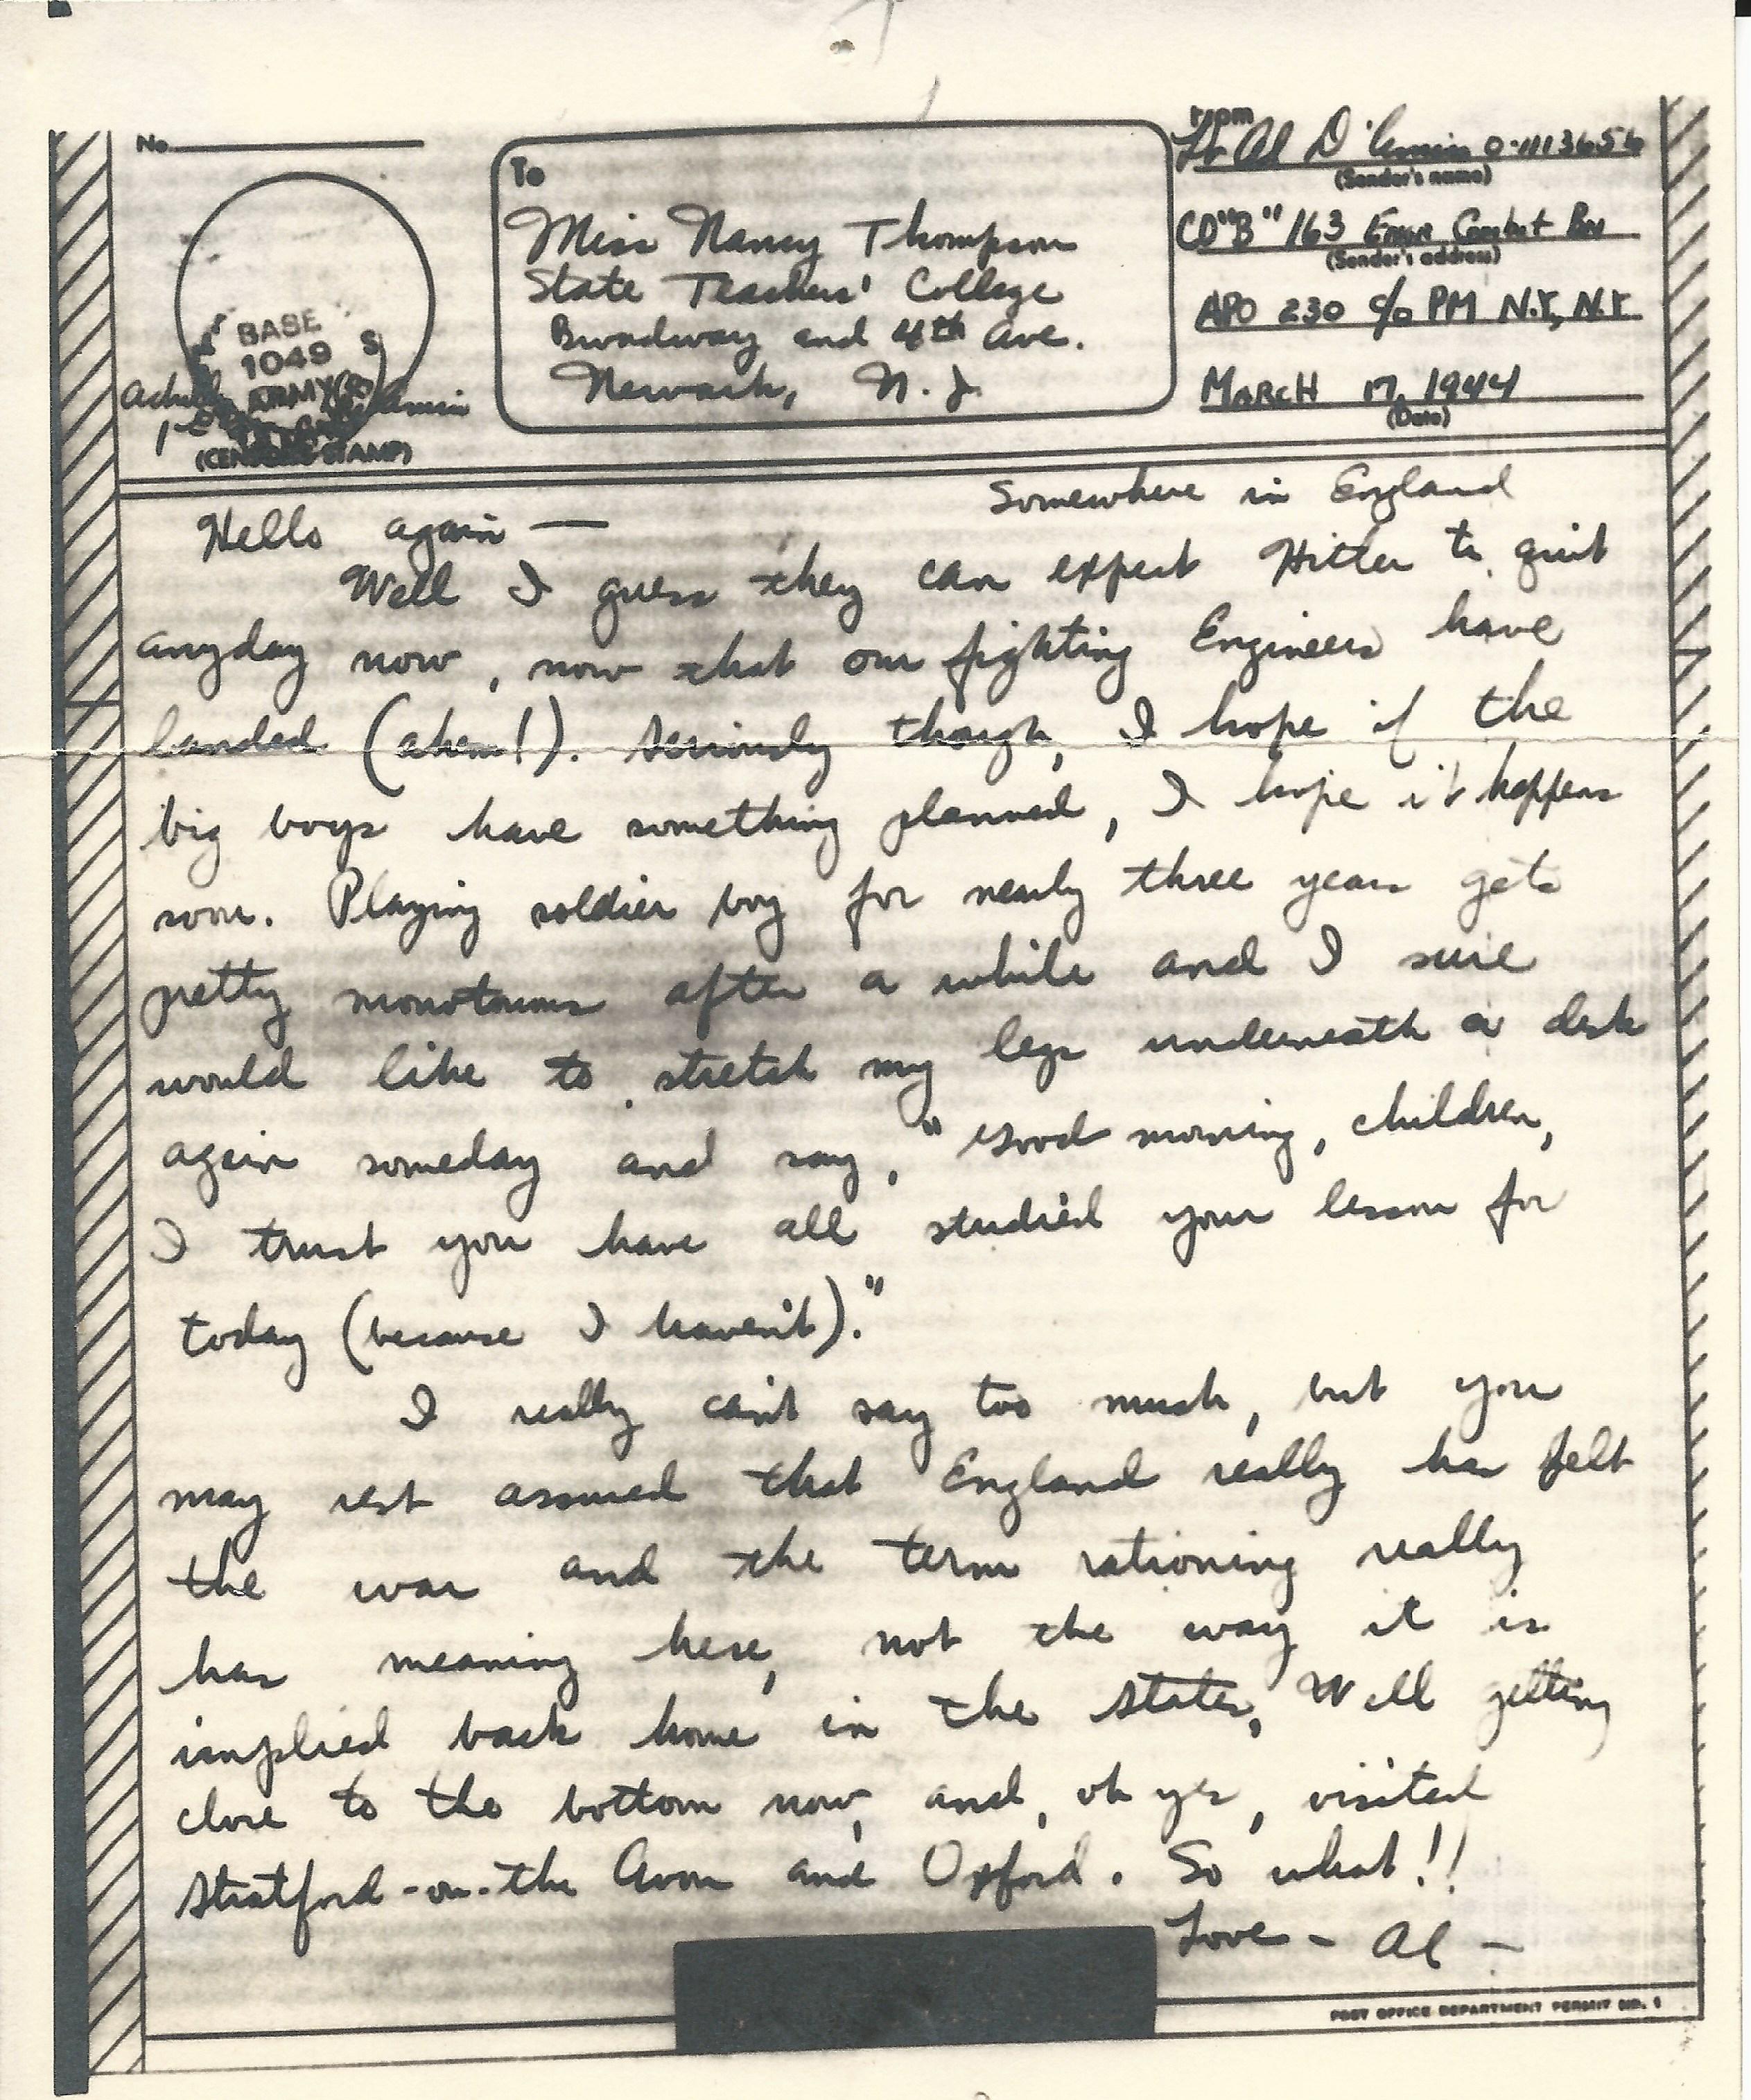 No.
To
Miss Nancy Thompson
State Teachers' College
Broadway and 4th Ave.
Newark, N.J.
From
Lt Al D'
(Sender's name)
CO "B" 163 Engr Combat Bn
(Sender's address)
APO 230 c/o PM N.Y., N.Y
MARCH 17, 1944
(Date)
BASE
1049 S
ARMY
(CENSOR'S STAMP)
Somewhere in England
Hello again —
Well I guess they can expect Hitler to quit
anyday now, now that our fighting Engineers have
landed (ahem!). Seriously though, I hope if the
big boys have something planned, I hope it happens
soon. Playing soldier boy for nearly three years gets
pretty monotonous after a while and I sure
would like to stretch my legs underneath a desk
again someday and say, "Good morning, children,
I trust you have all studied your lesson for
today (because I haven't)."
I really can't say too much, but you
may rest assured that England really has felt
the war and the term rationing really
has meaning here, not the way it is
implied back home in the states. Well getting
close to the bottom now, and, oh yes, visited
Stratford-on-the Avon and Oxford. So what!!
Love - Al -
POST OFFICE DEPARTMENT PERMIT NO. 1